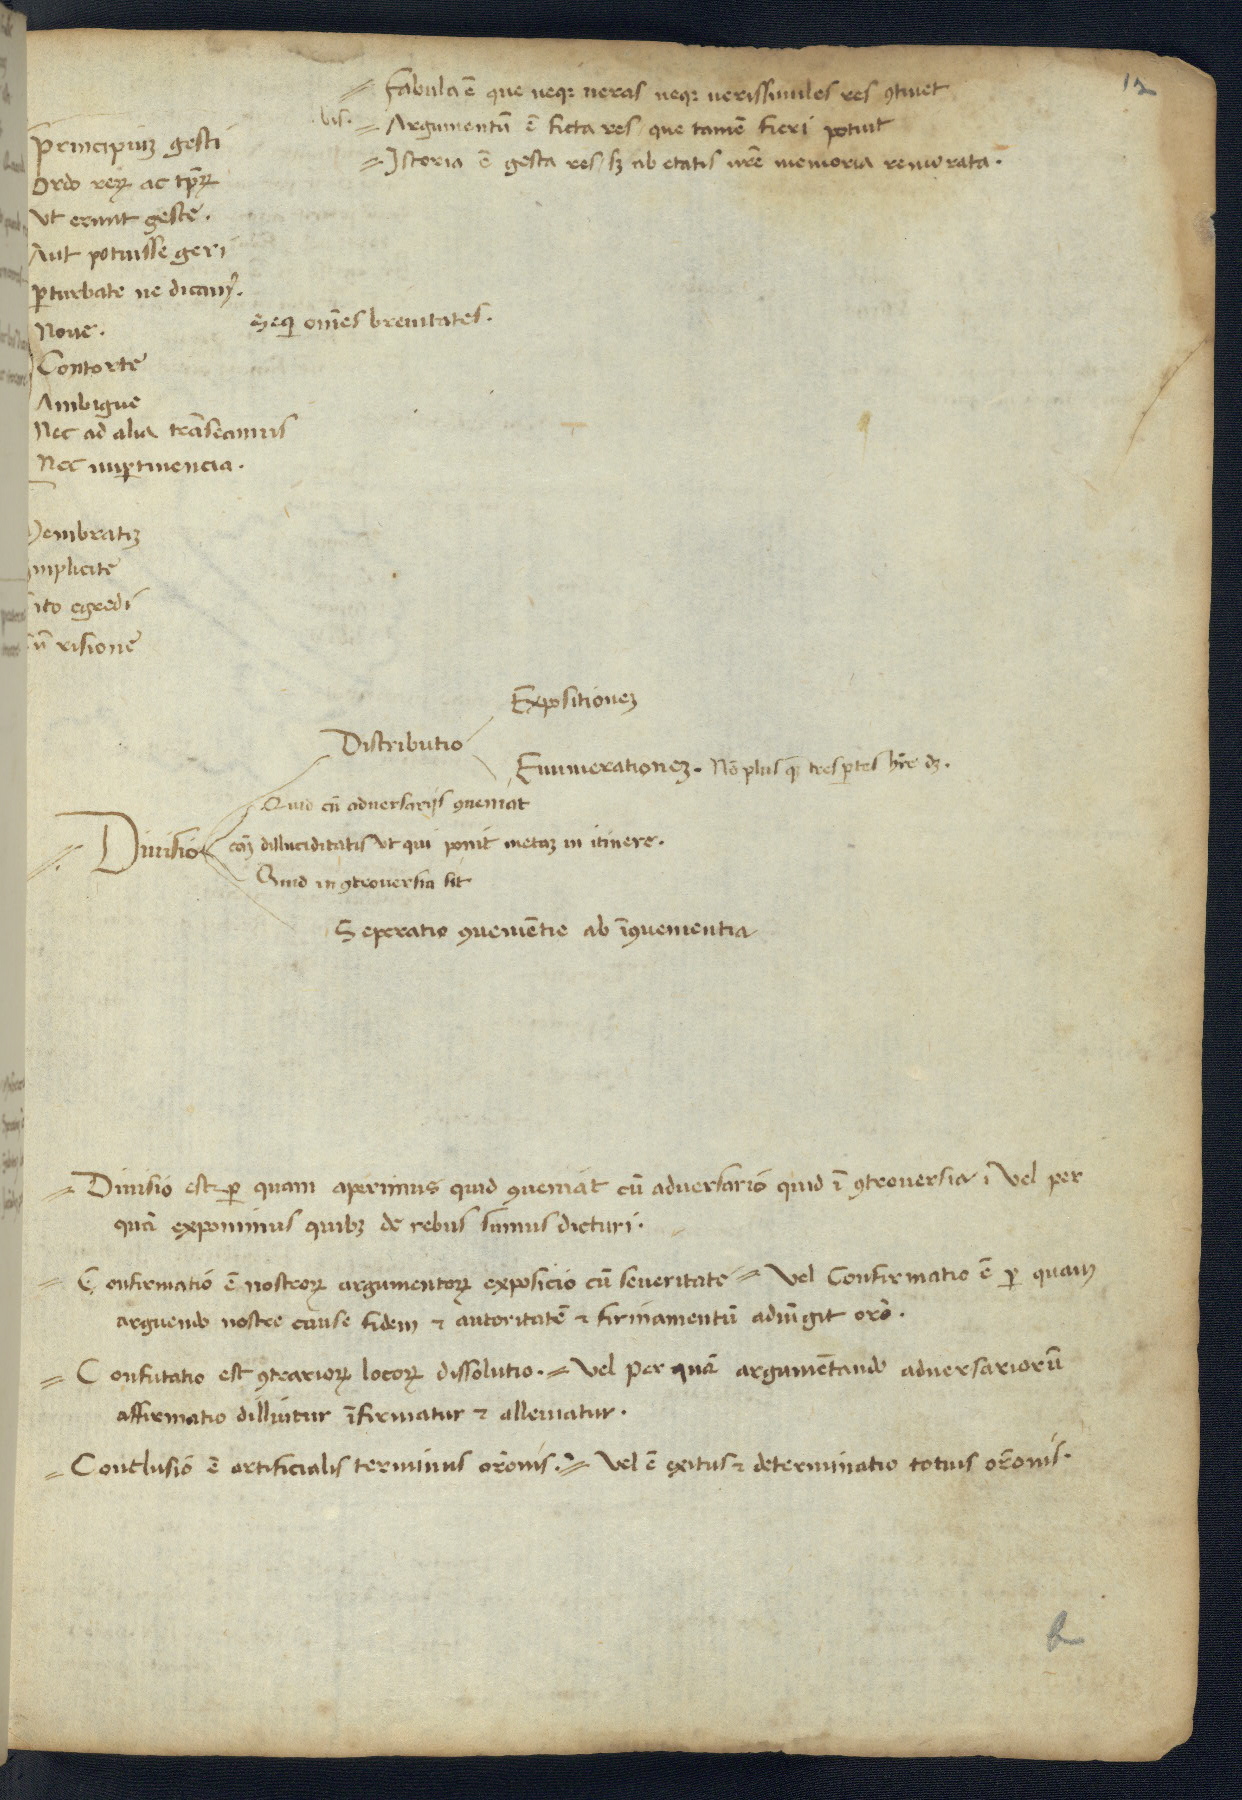 12
Fabula ē que neqꝫ ueras neqꝫ uerissimiles res ꝯtinet
bis. Argumentū ē ficta res que tamē fieri potuit
Istoria ē gesta res sꝫ ab etatis nr̄e memoria remorata.
Principiuꝫ gesti
Ordo reꝝ ac tp̄ꝝ
Vt erunt geste.
Aut potuisse geri
ꝑturbate ne dicamꝰ.
Noue.
Seqꝫ omēs breuitates.
Contorte
Ambigue
Nec ad alia trāseamus
Nec imꝑtinencia.
Membratiꝫ
implicite
ito egredi
cū risione
Expositioneꝫ
Distributio
Enumerationeꝫ. Nō plus qꝫ tres ꝑtes hr̄e dꝫ.
Quid cū aduersarijs ꝯueniat
Diuisio
cāꝫ dilluciditatis ut qui ponit metaꝫ in itinere.
Quid in ꝯtrouersia sit
Seperatio ꝯueniētie ab īꝯuenientia
Diuisio est ꝑ quam aperimus quid ꝯueniat cū aduersario quid ī ꝯtrouersia Vel per
quā exponimus quibꝫ de rebus sumus dicturi.
Confirmatio ē nostroꝝ argumentoꝝ exposicio cū seueritate Vel Confirmatio ē ꝑ quam
arguendo nostre cause fidem ⁊ autoritatē ⁊ firmamentū adiūgit orō.
Confutatio est ꝯtrarioꝝ locoꝝ dissolutio. Vel per quā argumētando aduersariorū
affirmatio dilluitur īfirmatur ⁊ alleuiatur.
Conclusio ē artificialis terminus orōnis. Vel ē exitus ⁊ determinatio totius orōnis.